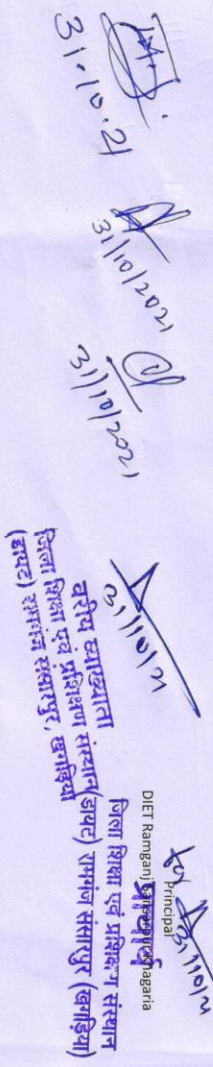 31.10.21
31/10/2021
31/10/2021
31/10/21
वरीय व्याख्याता
जिला शिक्षा एवं प्रशिक्षण संस्थान
(डायट) रामगंज संसारपुर, खगड़िया
for
31/10/21
Principal
DIET Ramganj Khagaria
प्राचार्य
जिला शिक्षा एवं प्रशिक्षण संस्थान
(डायट) रामगंज संसारपुर (खगड़िया)